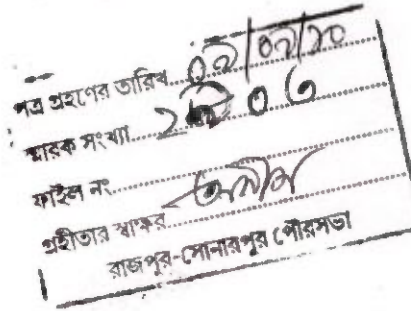 পত্র গ্রহণের তারিখ.....০২/০২/১০
স্মারক সংখ্যা.....
ফাইল নং.....
গ্রহীতার স্বাক্ষর.....
রাজপুর-সোনারপুর পৌরসভা